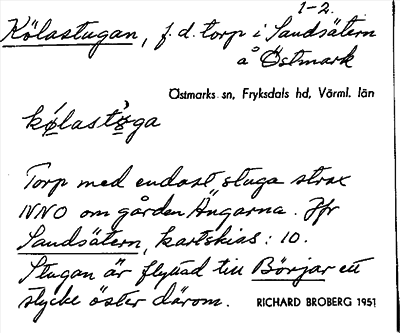 1-2.
Kölastugan, f.d. torp i Sandsätern
å Östmark
Östmarks sn, Fryksdals hd, Värml. län
Torp med endast stuga strax
NNO om gården Ängarna. Jfr
Sandsätern, kartskiss: 10.
Stugan är flyttad till Börjar ett
stycke öster därom. RICHARD BROBERG 1951